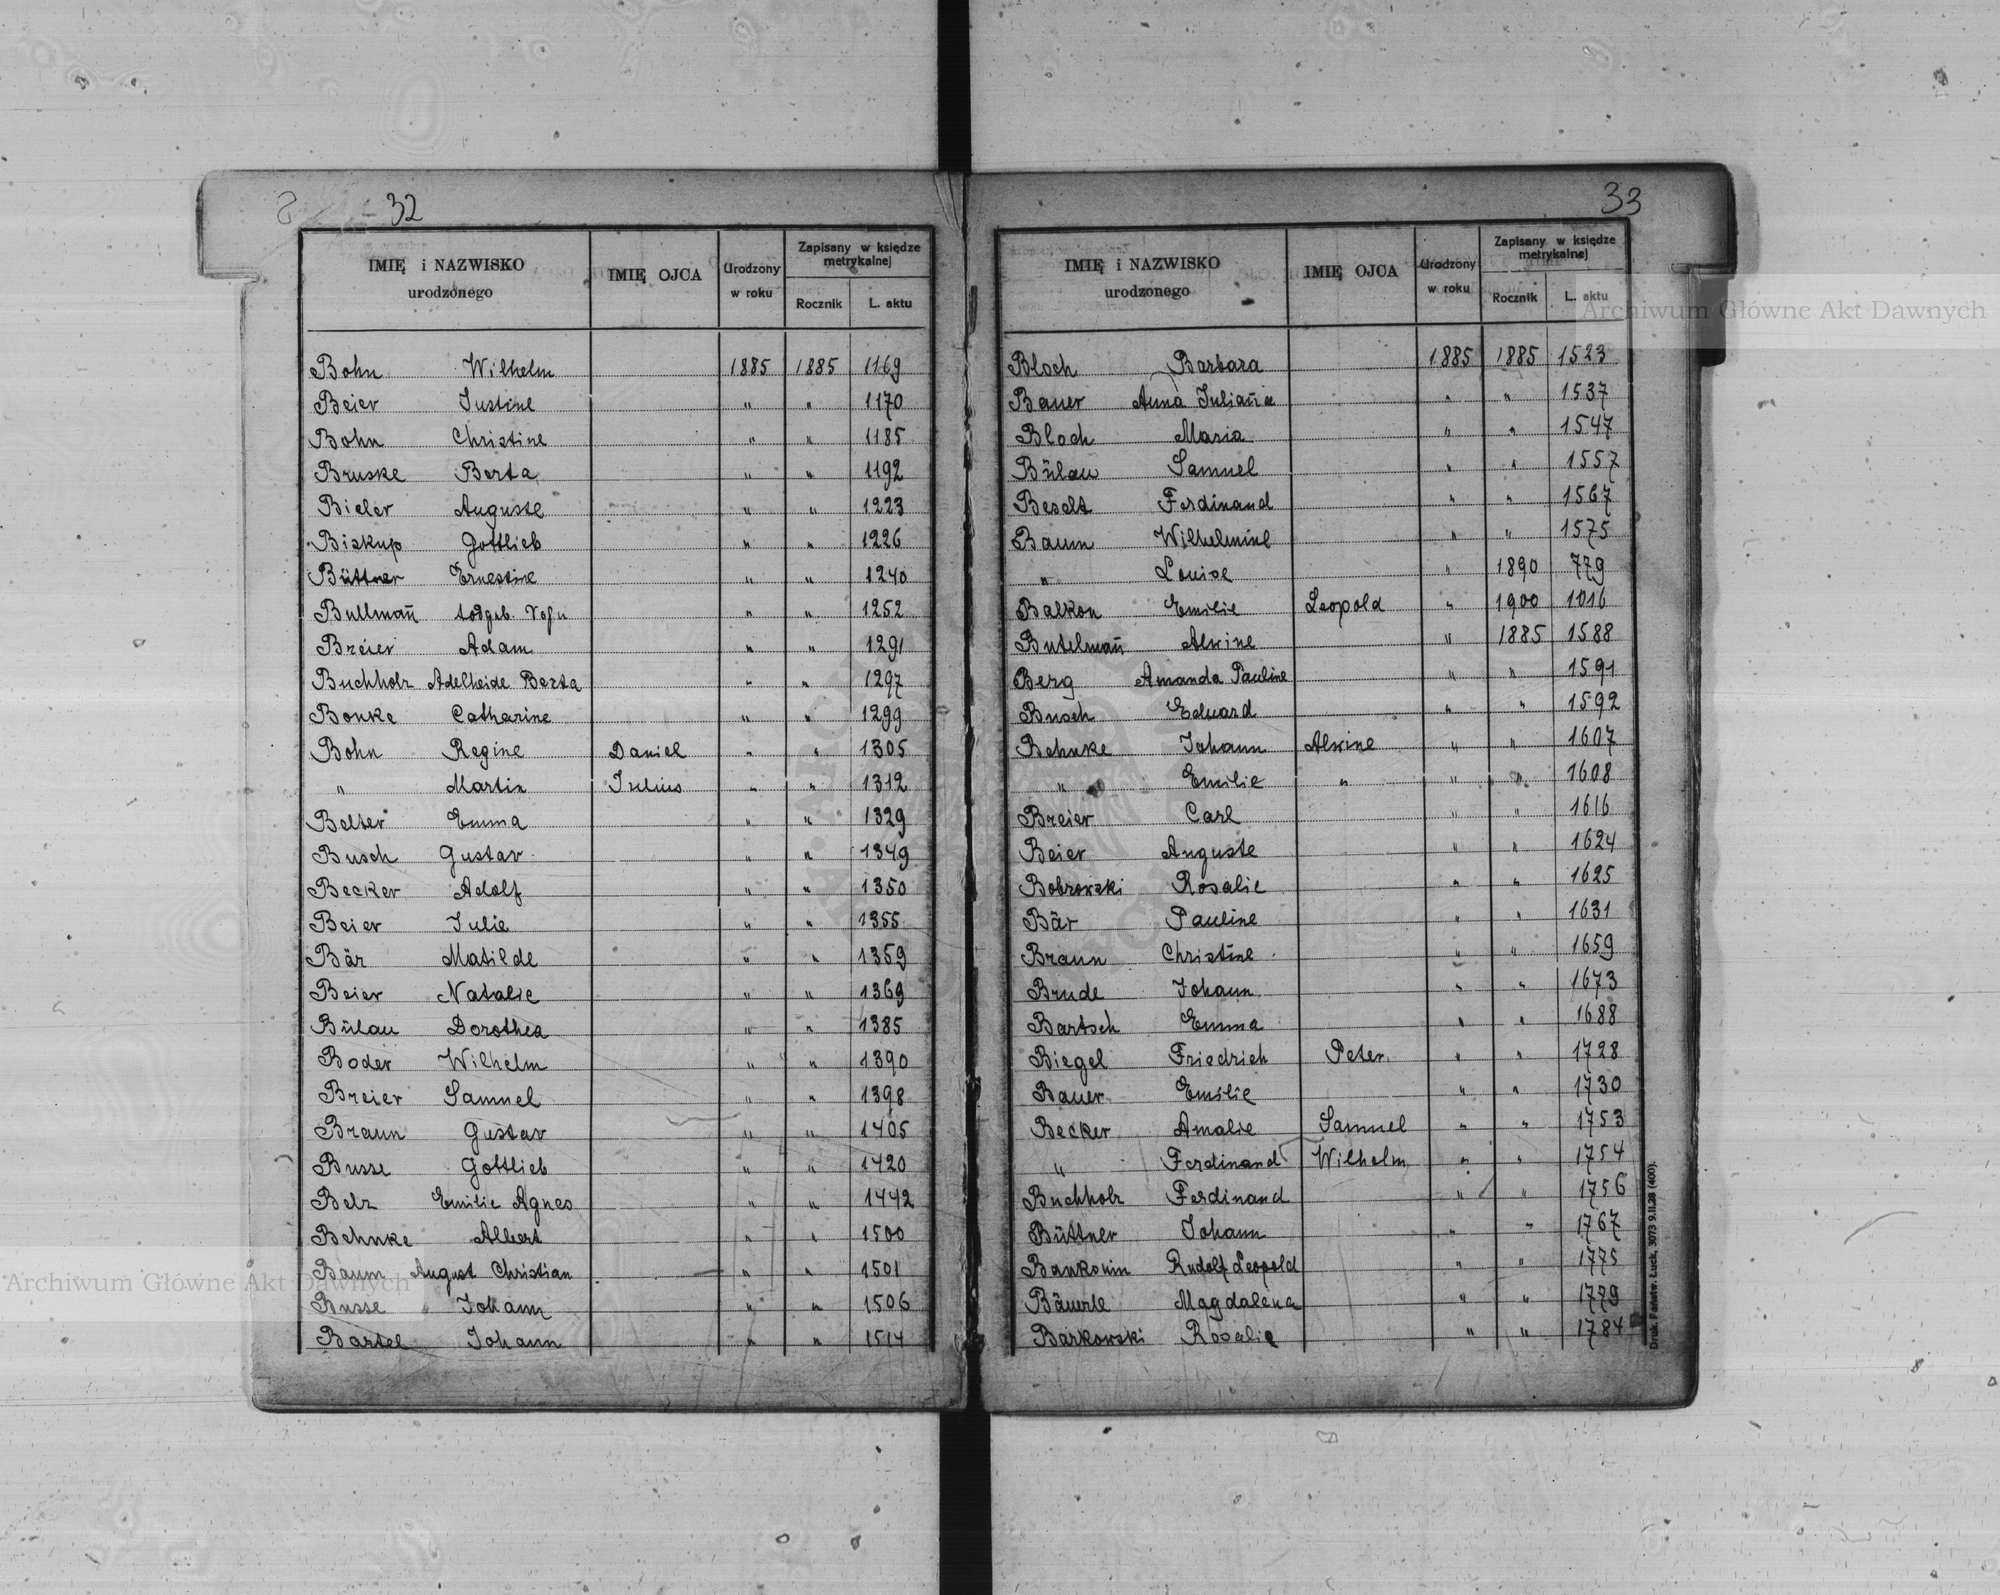 32
IMIĘ i NAZWISKO urodzonego | IMIĘ OJCA | Urodzony w roku | Zapisany w księdze metrykalnej
Rocznik | L. aktu
Bohn Wilhelm 1885 1885 1169
Beier Iustine " " 1170
Bohn Christine " " 1185
Bruske Berta " " 1192
Bieler Auguste " " 1223
Biskup Gottlieb " " 1226
Büttner Ernestine " " 1240
Bullman̄ todgeb. " " 1252
Breier Adam " " 1291
Buchholz Adelheide Berta " " 1297
Bonke Catharine " " 1299
Bohn Regine Daniel " " 1305
" Martin Iulius " " 1312
Belter Emma " " 1329
Busch Gustav " " 1349
Becker Adolf " " 1350
Beier Iulie " " 1355
Bär Matilde " " 1359
Beier Natalie " " 1369
Bülau Dorothea " " 1385
Boder Wilhelm " " 1390
Breier Samuel " " 1398
Braun Gustav " " 1405
Busse Gottlieb " " 1420
Belz Emilie Agnes " " 1442
Behnke Albert " " 1500
Baum August Christian " " 1501
Busse Iohann " " 1506
Bartel Iohann " " 1514
33
IMIĘ i NAZWISKO urodzonego | IMIĘ OJCA | Urodzony w roku | Zapisany w księdze metrykalnej
Rocznik | L. aktu
Bloch Barbara 1885 1885 1523
Bauer Anna Iulian̄a " " 1537
Bloch Maria " " 1547
Bülau Samuel " " 1557
Beselt Ferdinand " " 1567
Baum Wilhelmine " " 1575
" Louise " 1890 779
Balkon Emilie Leopold " 1900 1016
Butelman̄ Alwine " 1885 1588
Berg Amanda Pauline " " 1591
Busch Eduard " " 1592
Behnke Iohann Alwine " " 1607
" Emilie " " " 1608
Breier Carl " " 1616
Beier Auguste " " 1624
Bobrowski Rosalie " " 1625
Bär Pauline " " 1631
Braun Christine " " 1659
Brude Iohann " " 1673
Bartsch Emma " " 1688
Biegel Friedrich Peter " " 1728
Bauer Emilie " " 1730
Becker Amalie Samuel " " 1753
" Ferdinand Wilhelm " " 1754
Buchholz Ferdinand " " 1756
Büttner Iohann " " 1767
Bankonin Rudolf Leopold " " 1775
Bäuerle Magdalena " " 1779
Barkowski Rosalie " " 1784
Druk. Państw. Łuck, 3073 9.II.28 (400).
Archiwum Główne Akt Dawnych
Archiwum Główne Akt Dawnych